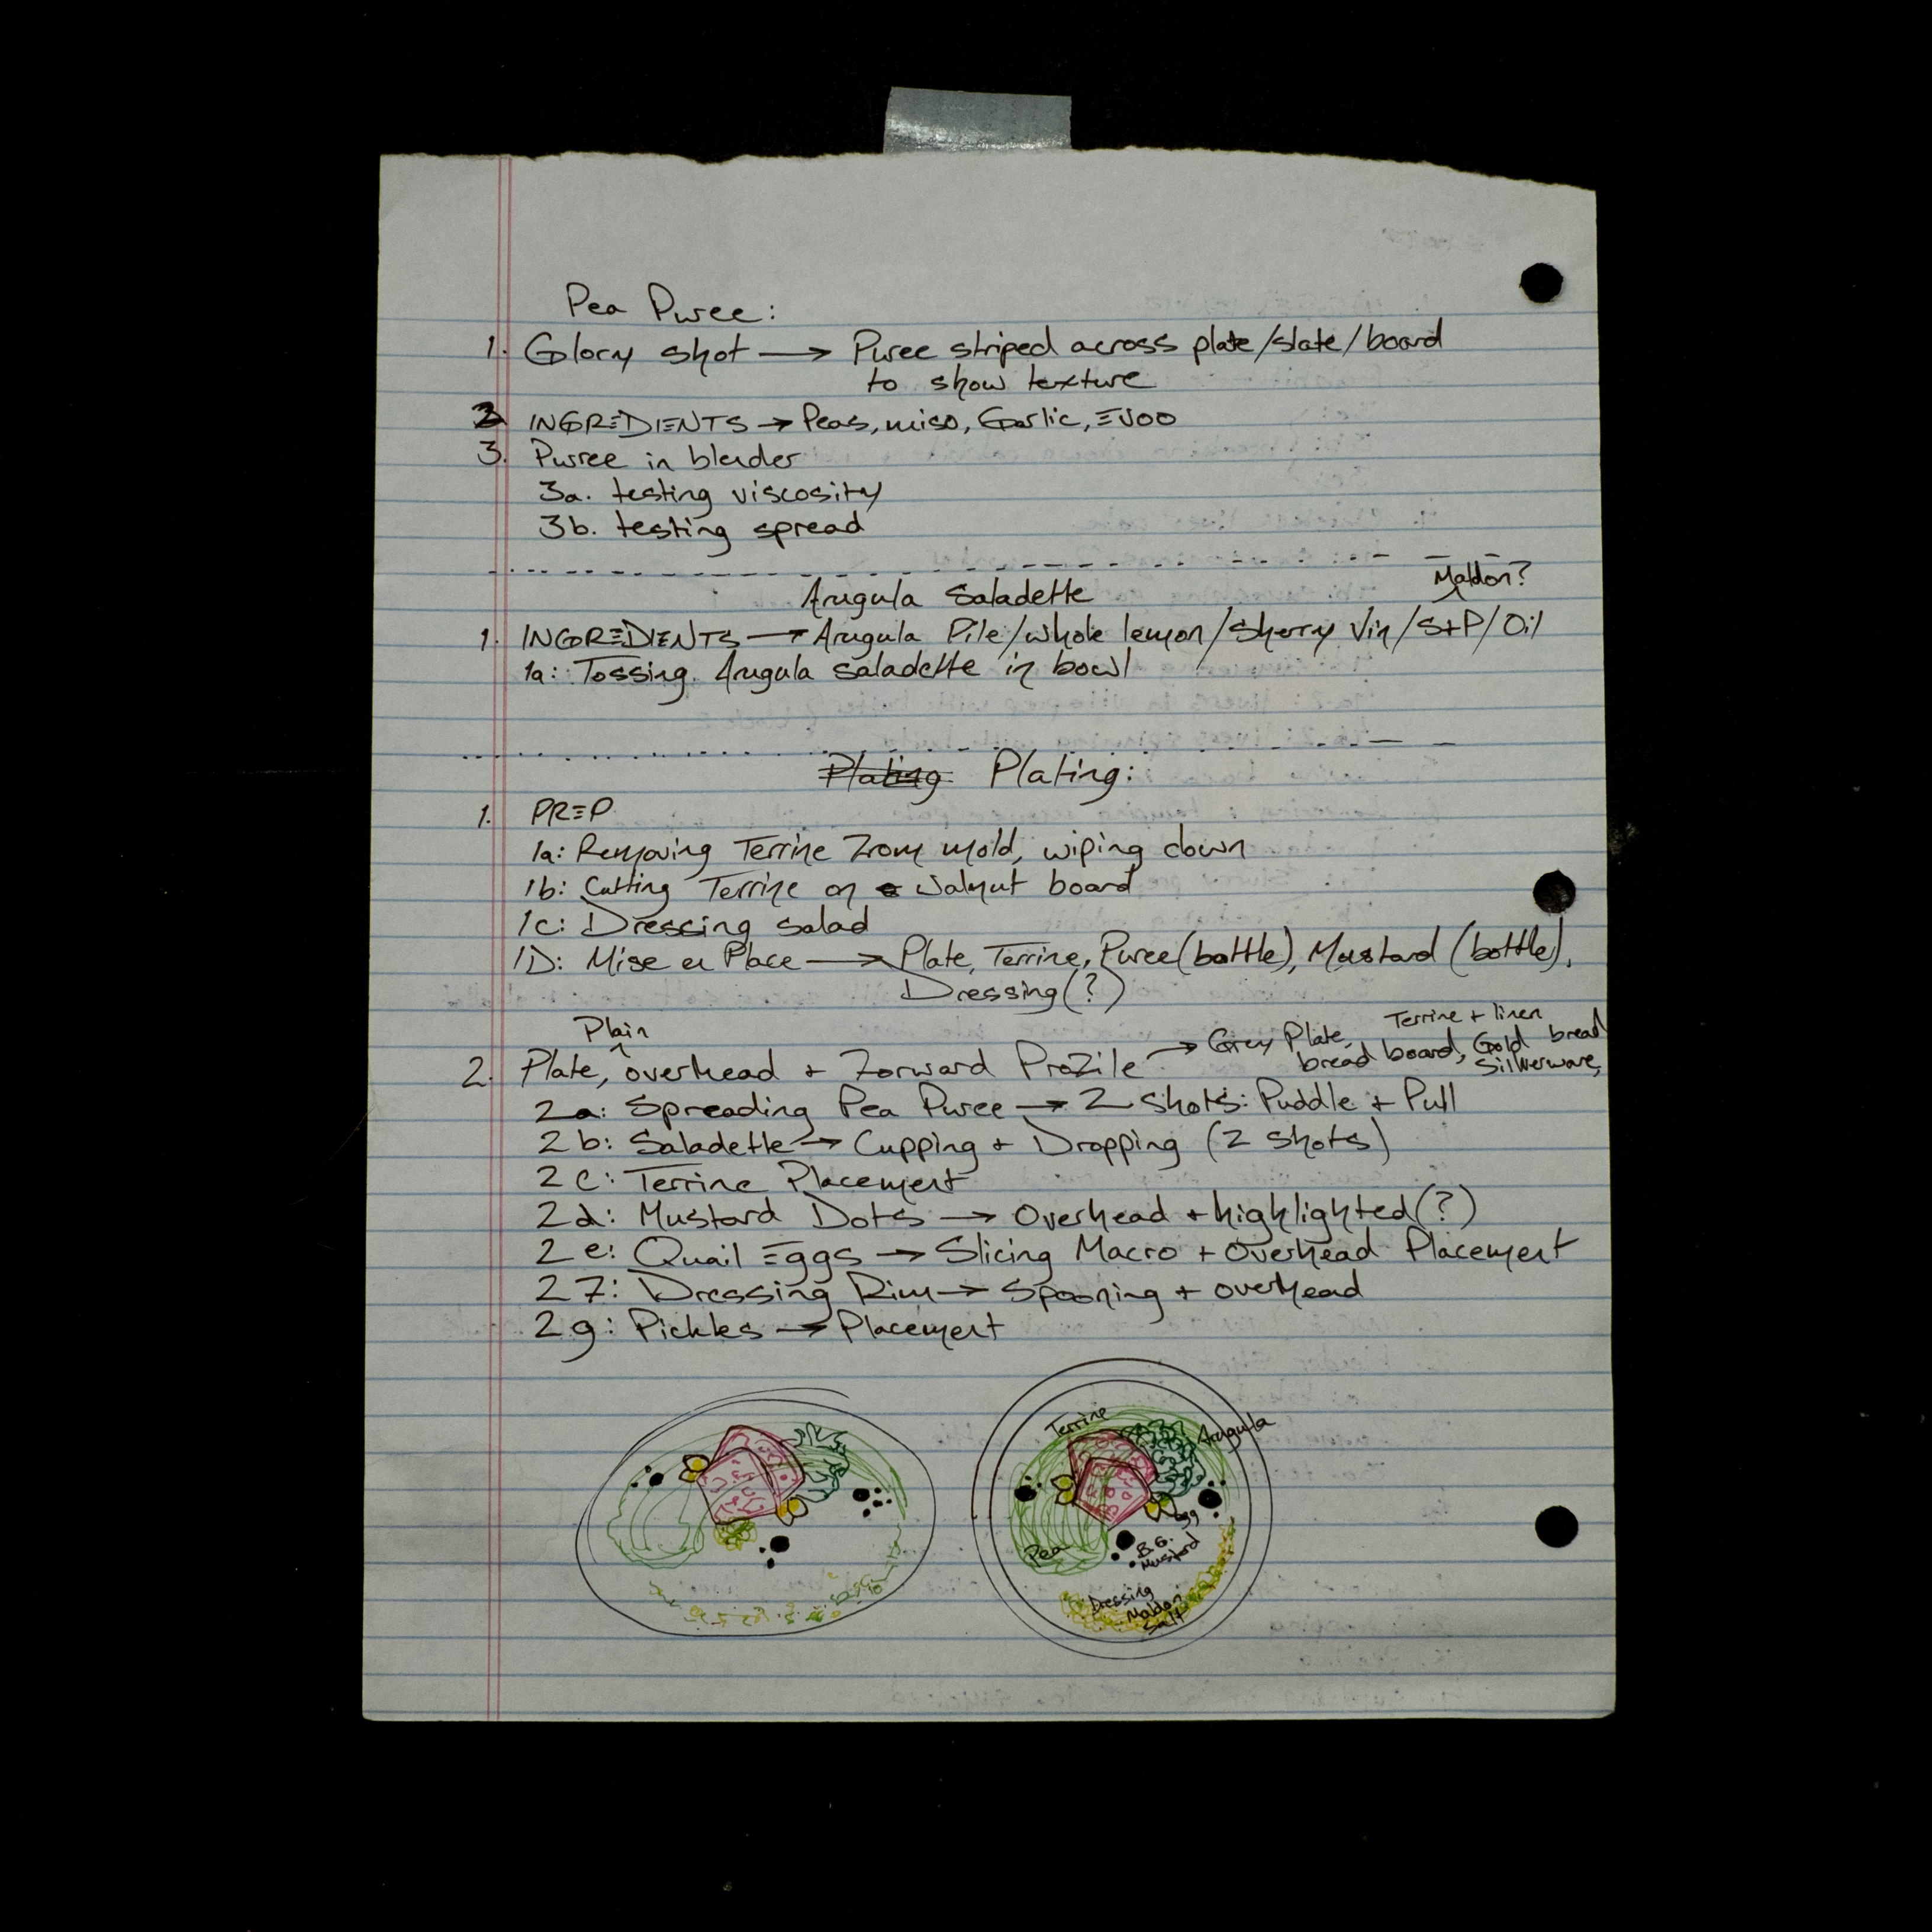 Pea Puree:
1. Glory shot → Puree striped across plate/slate/board
to show texture
2 INGREDIENTS → Peas, miso, Garlic, EVOO
3. Puree in blender
3a. testing viscosity
3b. testing spread
Arugula Saladette
Maldon?
1. INGREDIENTS → Arugula Pile/whole lemon/Sherry Vin/S+P/Oil
1a: Tossing Arugula saladette in bowl
Plating Plating:
1. PREP
1a: Removing Terrine From mold, wiping down
1b: Cutting Terrine on walnut board
1c: Dressing salad
1D: Mise en Place → Plate, Terrine, Puree (bottle), Mustard (bottle),
Dressing (?)
Plain
2. Plate, overhead + Forward Profile → Grey Plate, Terrine + linen
bread board, Gold bread
Silverware,
2a: Spreading Pea Puree → 2 shots: Puddle + Pull
2b: Saladette → Cupping + Dropping (2 shots)
2c: Terrine Placement
2d: Mustard Dots → Overhead + highlighted (?)
2e: Quail Eggs → Slicing Macro + Overhead Placement
2F: Dressing Rim → Spooning + overhead
2g: Pickles → Placement
Terrine
Arugula
Egg
Pea
B.G.
Mustard
Dressing
Maldon
Salt